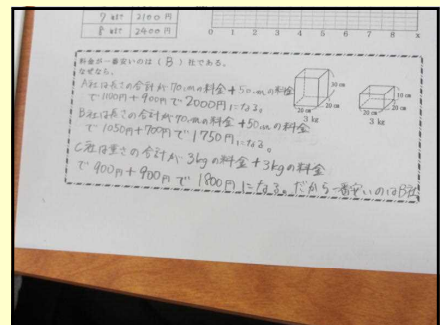 7 kgまで 2100円
8 kgまで 2400円
0 1 2 3 4 5 6 7 8 x
料金が一番安いのは（B）社である。
なぜなら、
A社は長さの合計が70cmの料金＋50cmの料金
で1100円＋900円で2000円になる。
B社は長さの合計が70cmの料金＋50cmの料金
で1050円＋700円で1750円になる。
C社は重さの合計が3kgの料金＋3kgの料金
で900円＋900円で1800円になる。だから一番安いのはB社
30cm
20cm
20cm
3 kg
10cm
20cm
20cm
3 kg